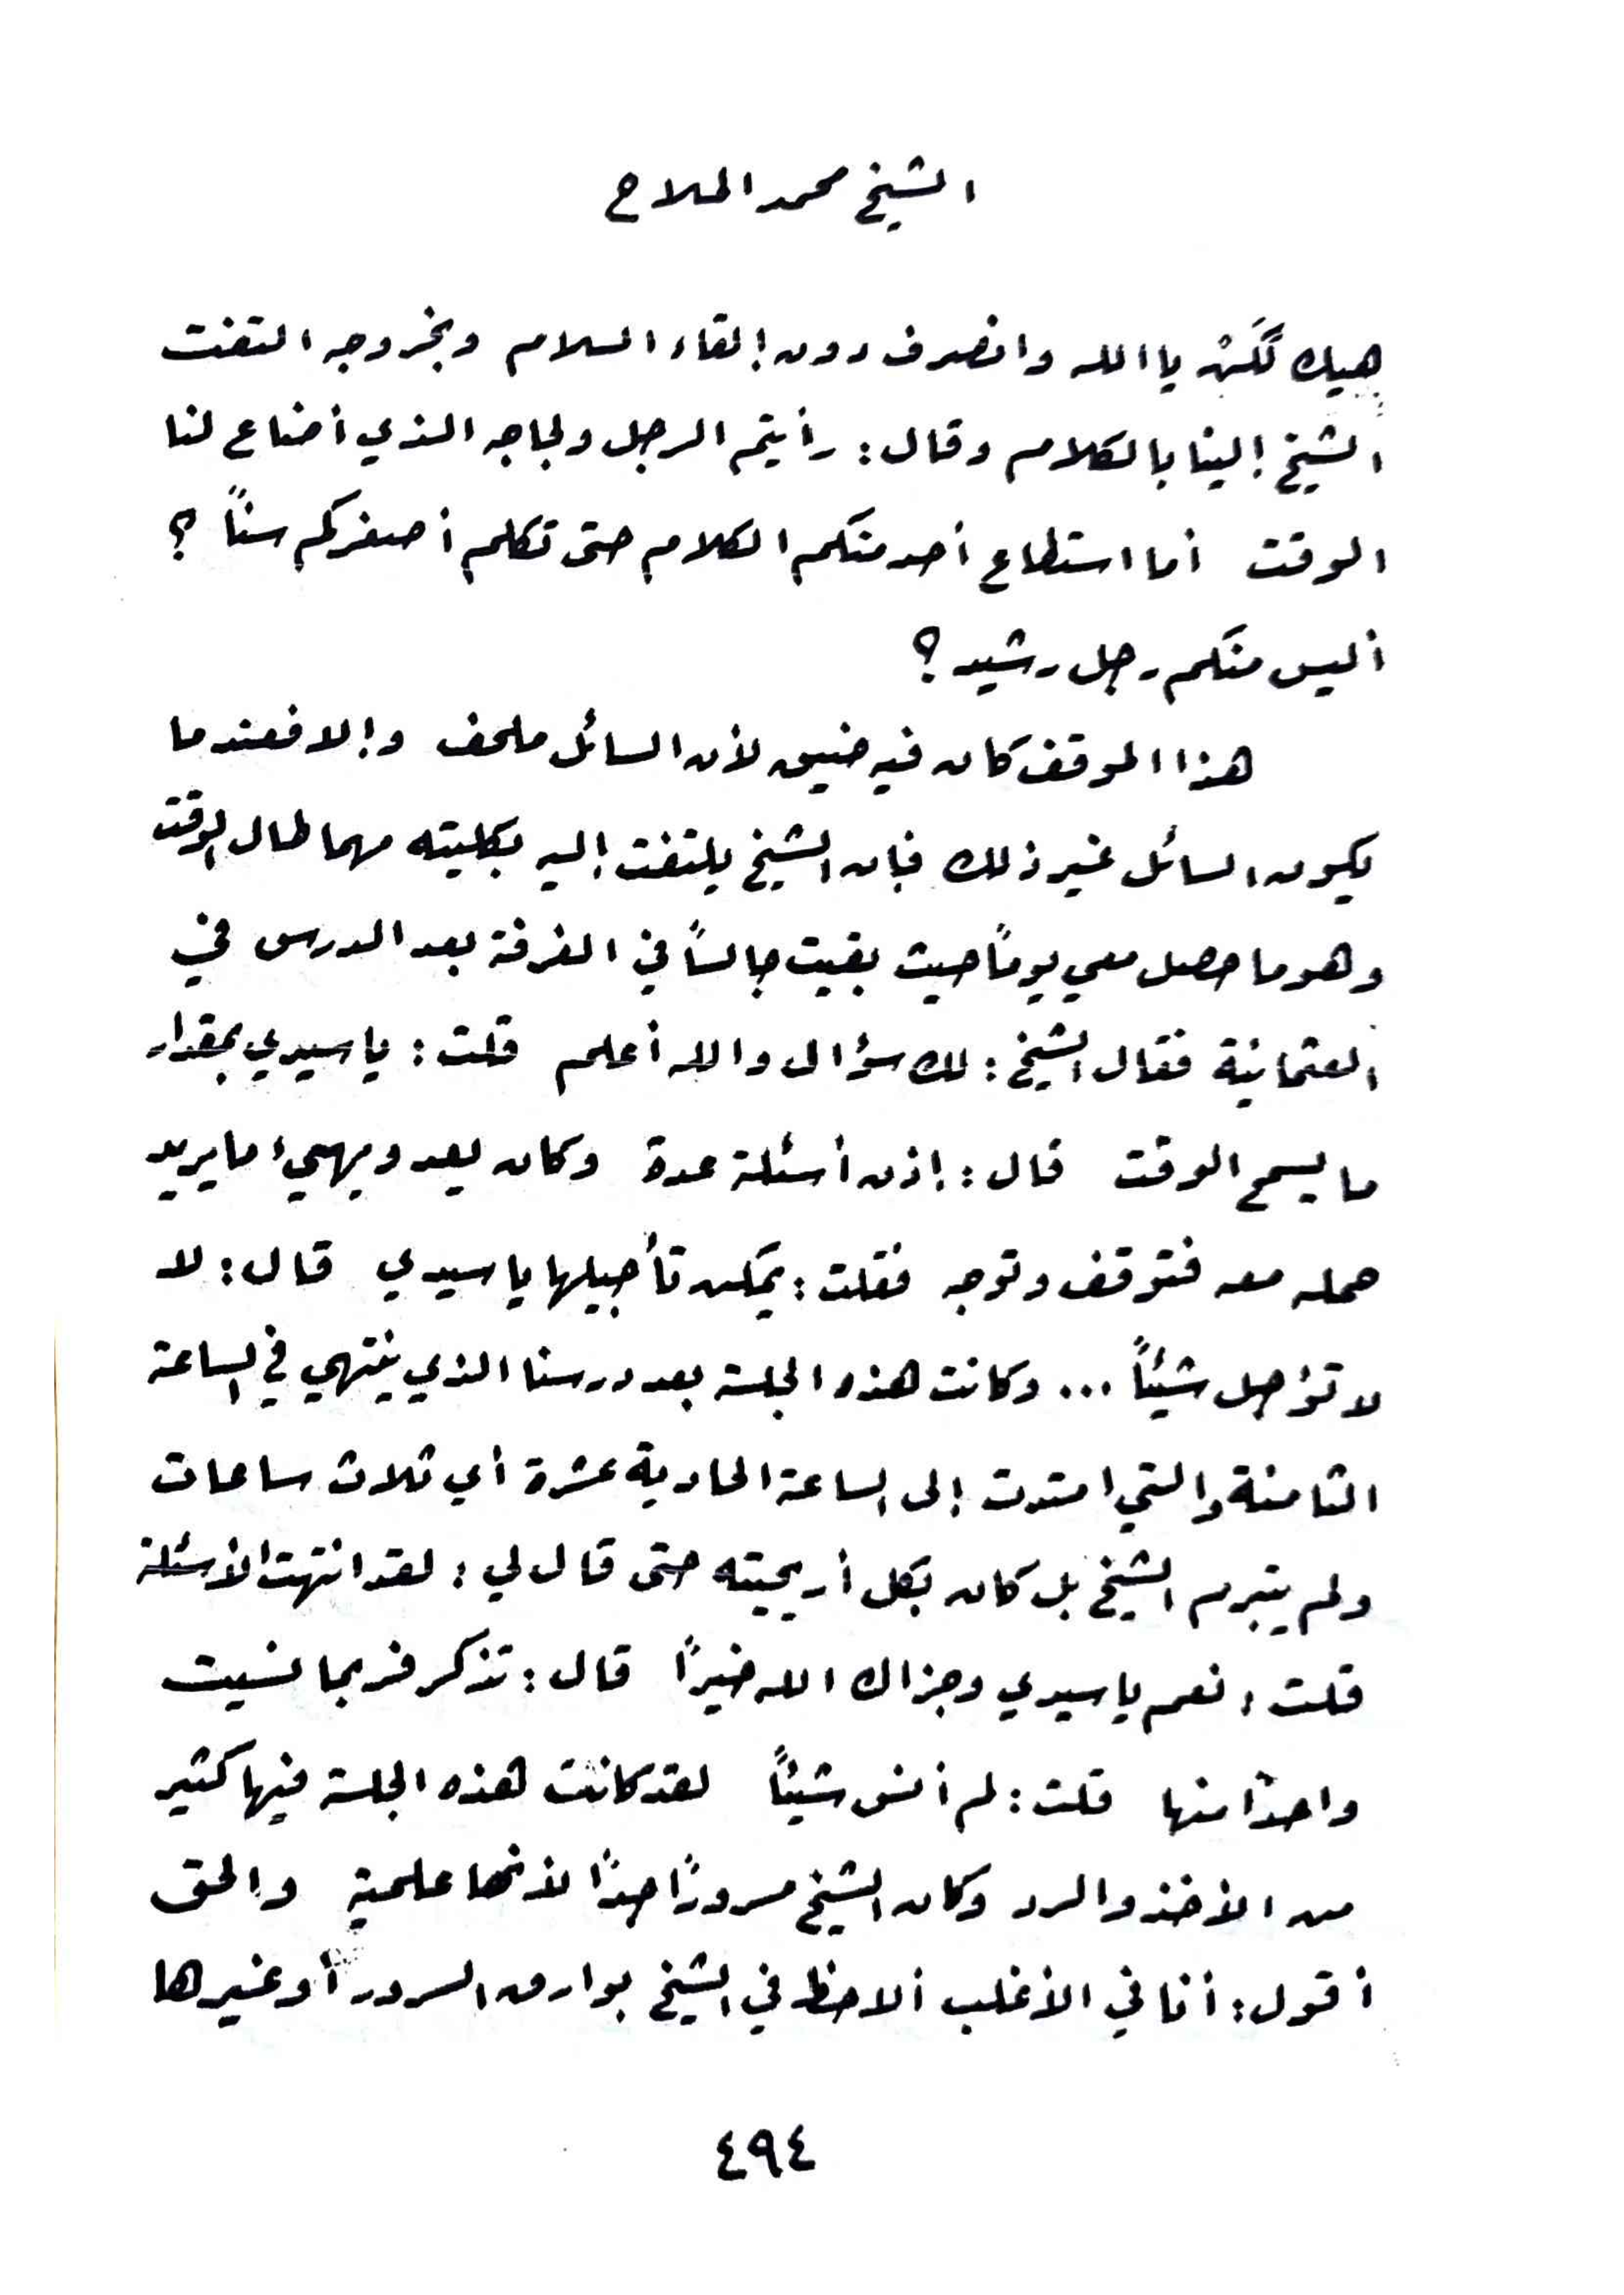 الشيخ محمد الملاح
هيك لكن يا الله وانصرف دون إلقاء السلام وبخروجه التفت
الشيخ إلينا بالكلام وقال: رأيتم الرجل ولجاجه الذي أضاع لنا
الوقت أما استطاع أحد منكم الكلام حتى تكلم أصغركم سناً ؟
أليس منكم رجل رشيد ؟
هذا الموقف كان فيه ضيق لأن السائل ملحف وإلا فعندما
يكون السائل غير ذلك فإن الشيخ يلتفت إليه بكليته مهما طال الوقت
وهو ما حصل معي يوماً حيث بقيت جالساً في الغرفة بعد الدرس في
العثمانية فقال الشيخ: لك سؤال والله أعلم قلت: يا سيدي بمقدار
ما يسمح الوقت قال: إذن أسئلة عدة وكان يعد ويهيء ما يريد
حمله معه فتوقف وتوجه فقلت: يمكن تأجيلها يا سيدي قال: لا
لا تؤجل شيئاً ... وكانت هذه الجلسة بعد درسنا الذي ينتهي في الساعة
الثامنة والتي امتدت إلى الساعة الحادية عشرة أي ثلاث ساعات
ولم يتبرم الشيخ بل كان بكل أريحيته حتى قال لي: لقد انتهت الأسئلة
قلت: نعم يا سيدي وجزاك الله خيراً قال: تذكر فربما نسيت
واحداً منها قلت: لم أنس شيئاً لقد كانت هذه الجلسة فيها كثير
من الأخذ والرد وكان الشيخ مسروراً جداً لأنها علمية والحق
أقول: أنا في الأغلب ألاحظ في الشيخ بوارق السرور أو غيرها
٤٩٤